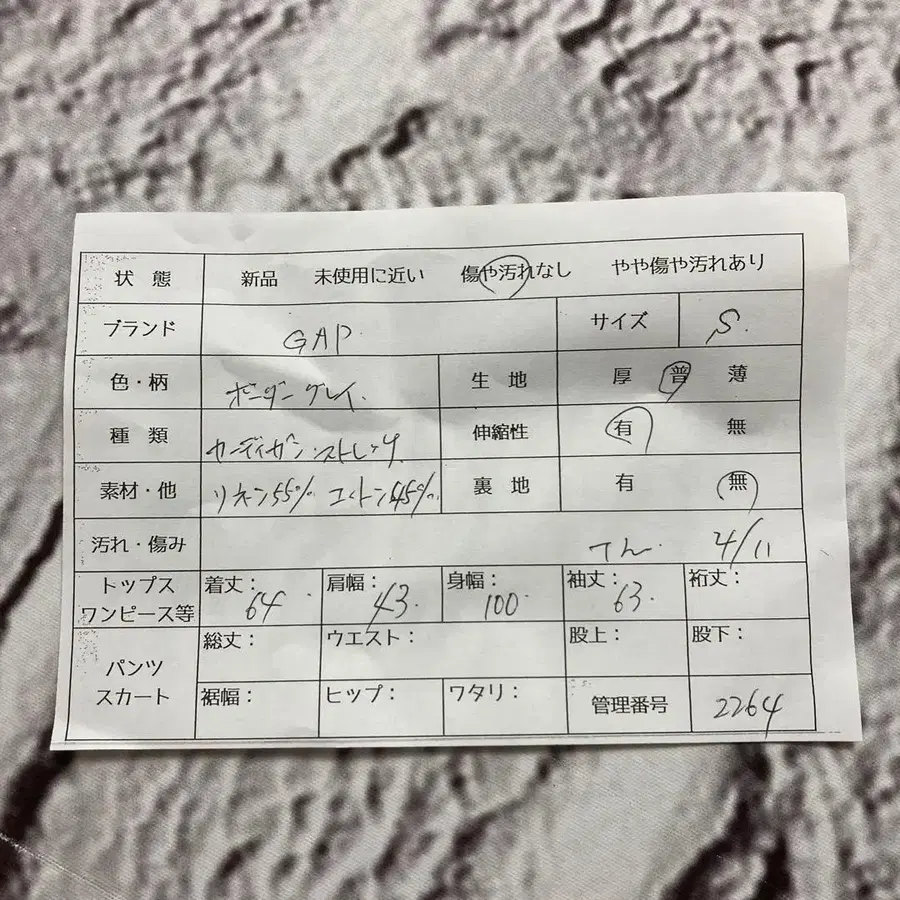 状 態 新品 未使用に近い 傷や汚れなし やや傷や汚れあり
ブランド GAP サイズ S
色・柄 ボーダーグレイ 生 地 厚 普 薄
種 類 カーディガン・ストレッチ 伸縮性 有 無
素材・他 リネン55% コットン45% 裏 地 有 無
汚れ・傷み 4/11
トップス ワンピース等 着丈: 64 肩幅: 43 身幅: 100 袖丈: 63 裄丈:
パンツ スカート 総丈: ウエスト: 股上: 股下:
裾幅: ヒップ: ワタリ: 管理番号 2264